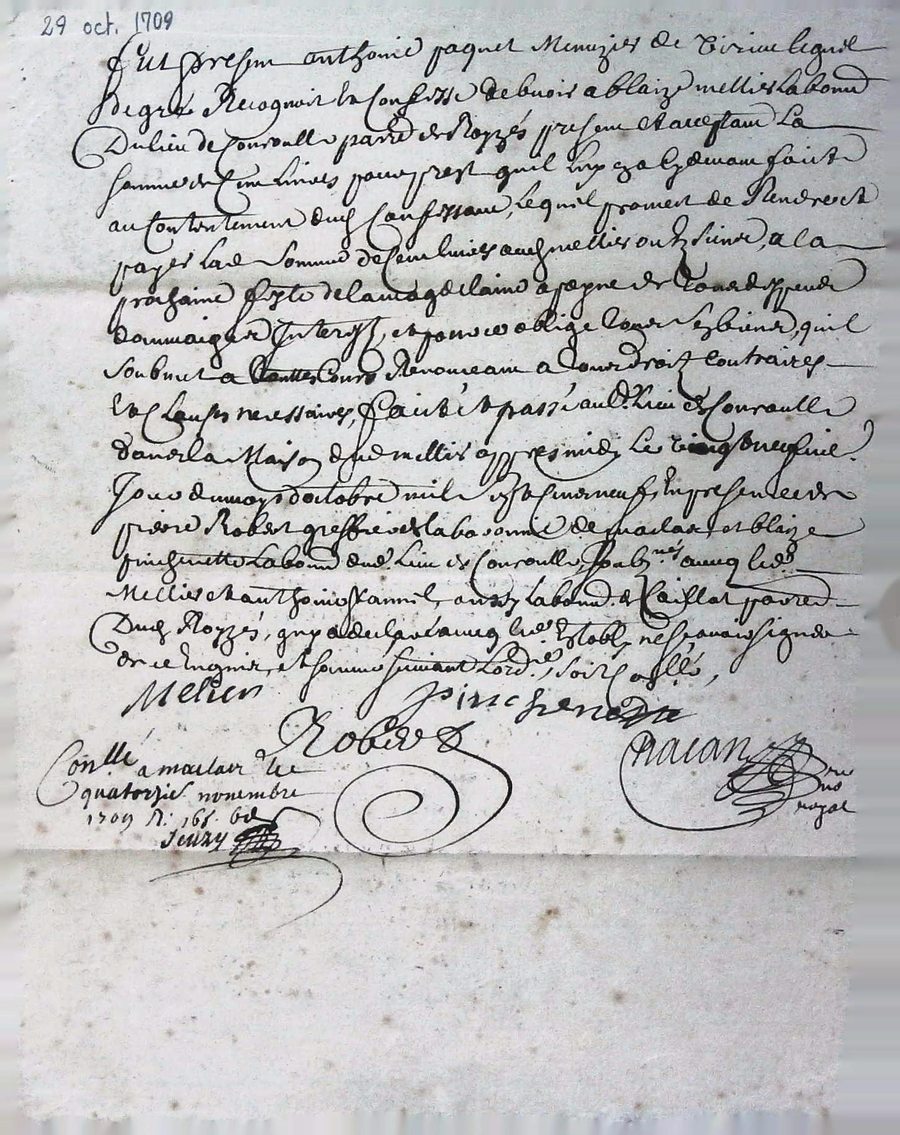 29 oct. 1709
Fut present anthoine paquet Menuzier de Virieu lequel
de gré Recognoit et Confesse debvoir a blaize mellier Labour
Du lieu de Couroulle parre de Royzés present et acceptant La
somme de Cent Livres pour prest quil luy a cy devant faict
au Contentement dud Confessant, Lequel promet de Rendre et
payer Lad Somme de Cent livres aud mellier ou es siens, a la
prochaine feste de la magdelaine a peyne de tous despens
dommaiges Interest, et pour ce oblige tous ses biens, quil
soubmet a Cours Renonceant a tous droits Contraires
et Clauses necessaires, faict et passé aud. Lieu de Couroulle
dans la Maison dud mellier appres midy Le vingt neufvie.
Jour du moys doctobre mil sept Cent neuf En presence de
pierre Robert greffier de la baronnie de maclas, et blaize
pinchenette Labour dud. Lieu de Couroulle, soubz.nés avecq led.
Mellier et anthoine Labour. de Caillat parre
Dud Royzés, quy a declaré avecq led. oblige ne scavoir signer
de ce Enquis, et somme suivant Lord.ce, soit Conllé,
Melier
pinchenette
Robert
Chatan
re
no
royal
Conllé a maclas le
quatorzie novembre
1709 R.
Jeuzy